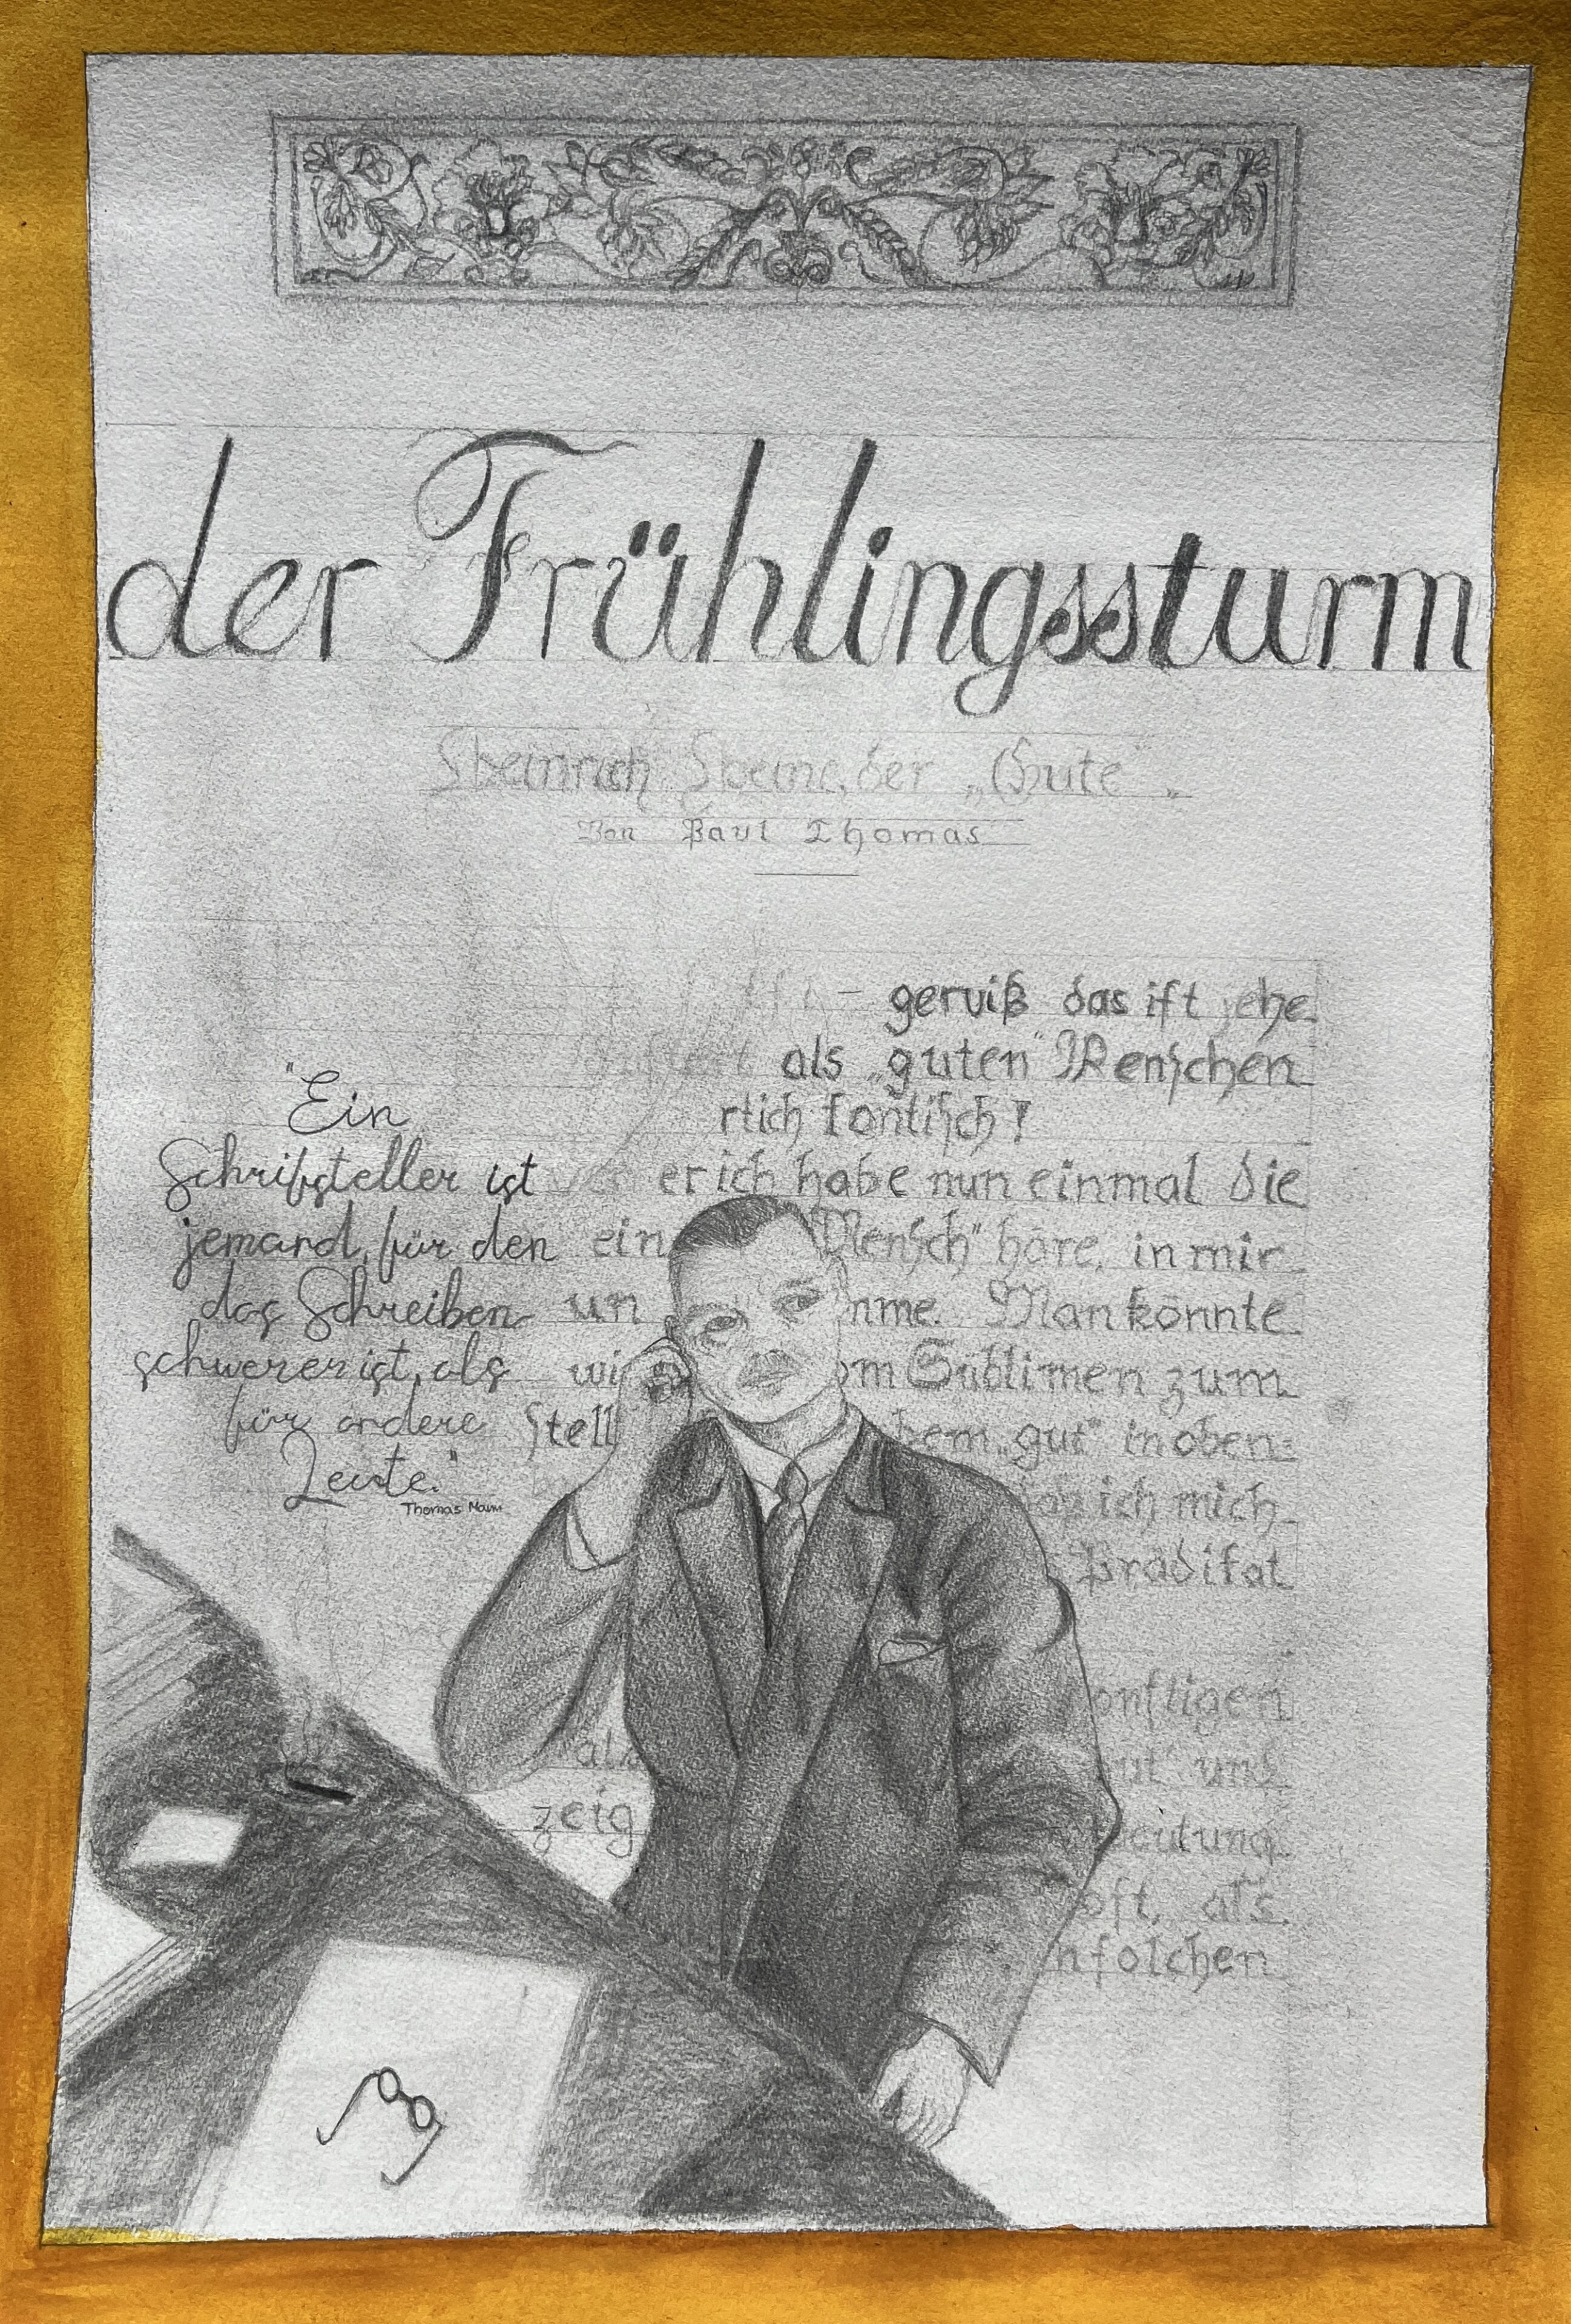 der Frühlingssturm
Heinrich Heine, der „Gute".
Von Paul Thomas
gewiß das ist jene
als „guten" Menschen
rtich komisch!
er ich habe nun einmal die
ein Mensch" höre, in mir
un nme. Man könnte
wi om Sublimen zum
stell bem „gut" in oben=
ich mich
Prädikat
onstigen
als ut" und
zeig
oft, als
n solchen
"Ein
Schriftsteller ist
jemand, für den
das Schreiben
schwerer ist, als
für andere
Leute."
Thomas Mann